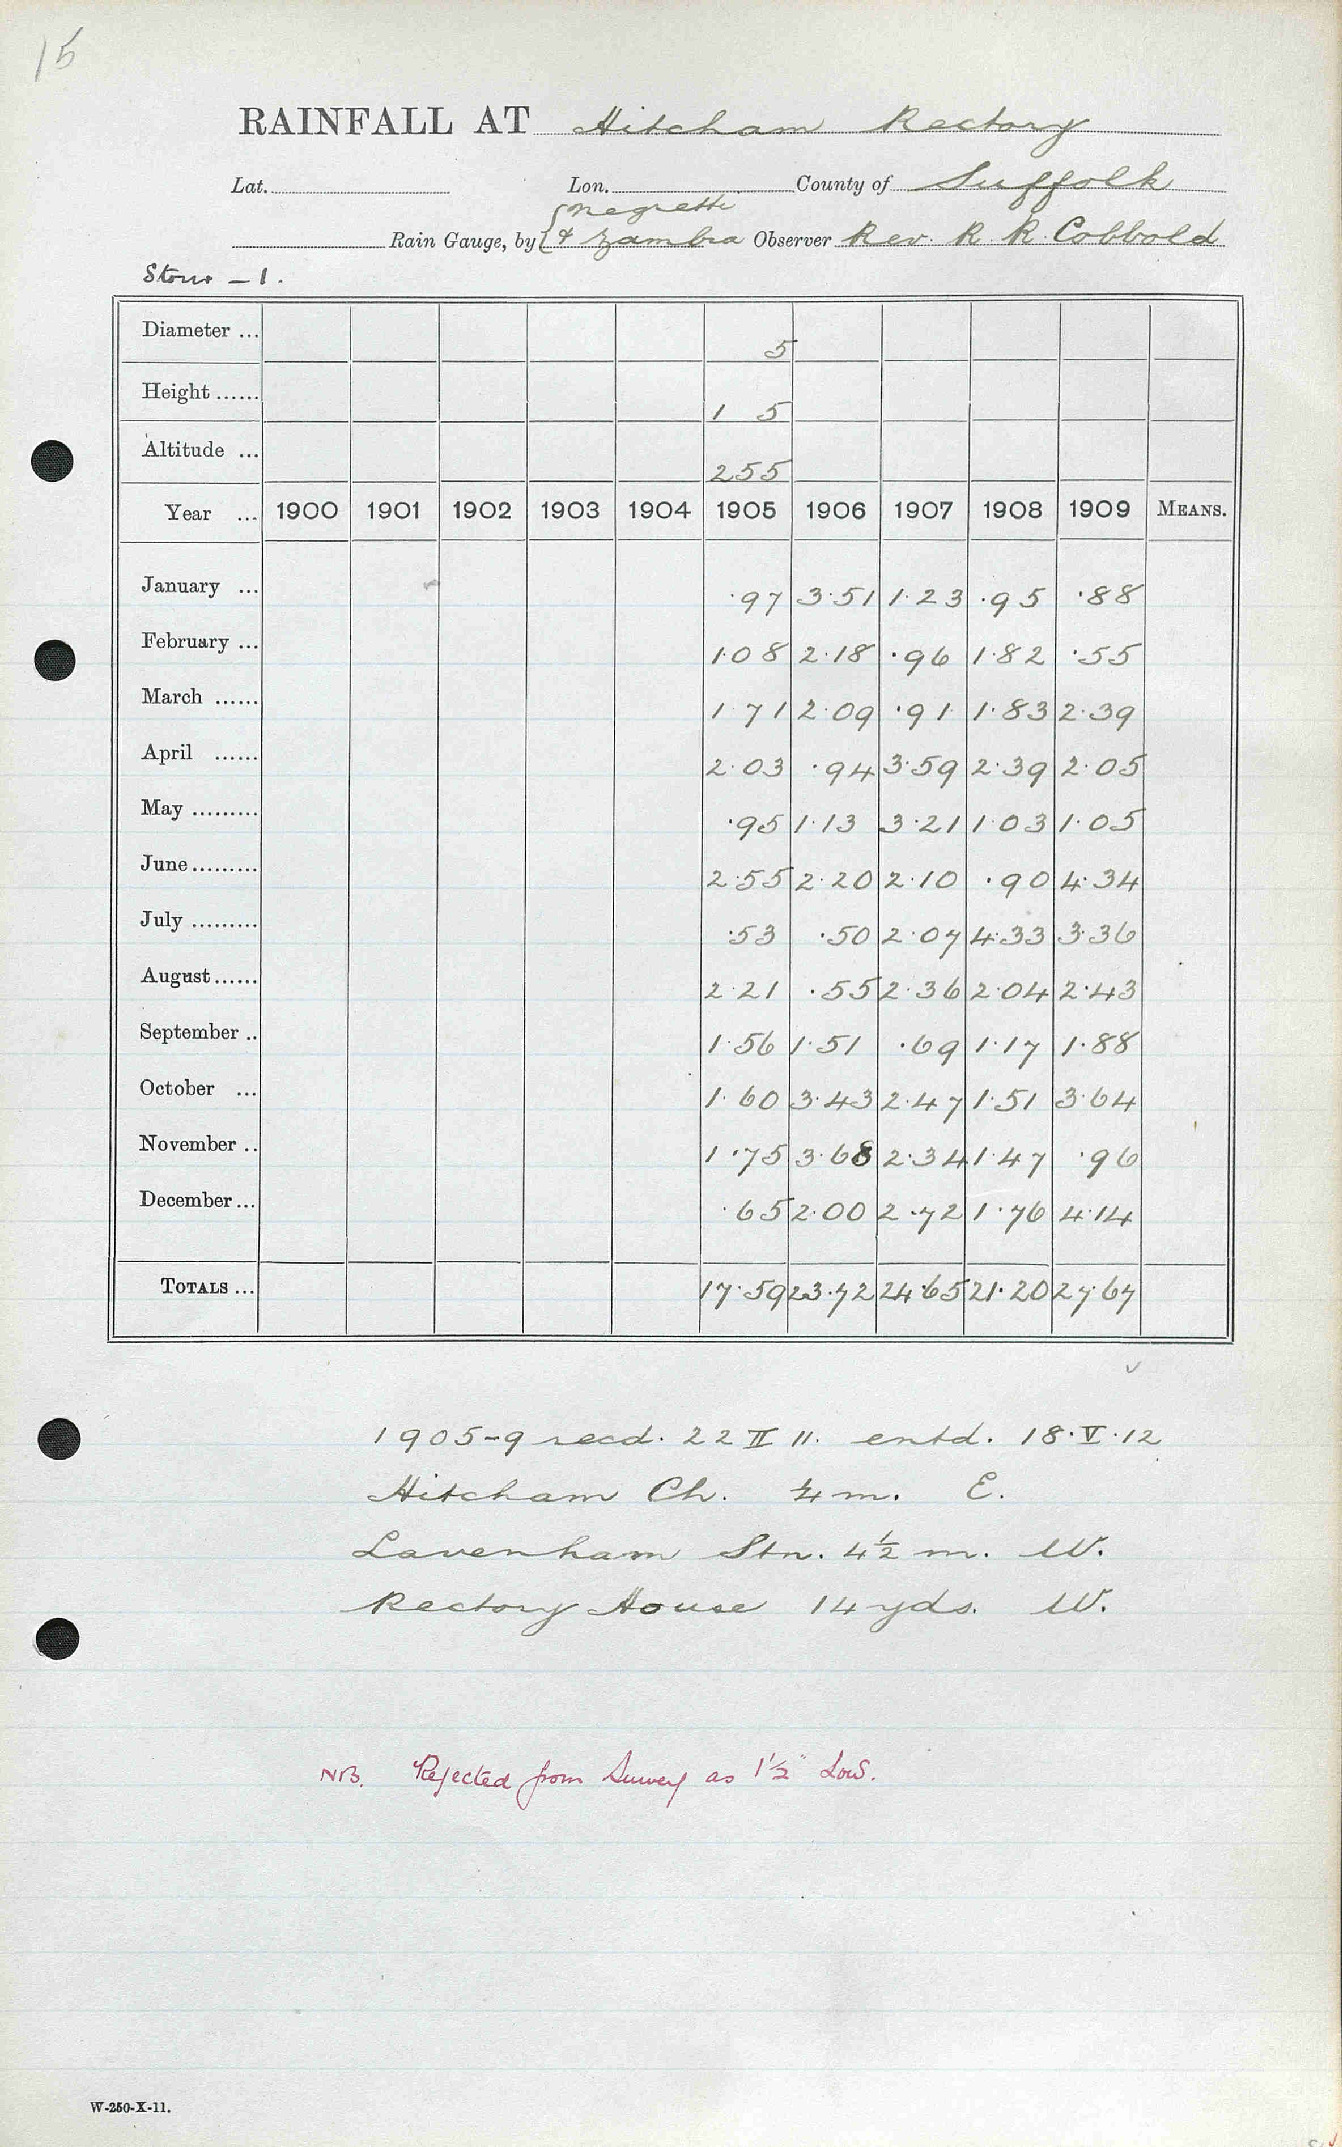 15
RAINFALL AT Hitcham Rectory
Lat. Lon. County of Suffolk
Negretti
Rain Gauge, by & Zambra Observer Rev. R. R. Cobbold
Stour - 1.
Diameter ... 5
Height ...... 1 5
Altitude ... 255
Year ... 1900 1901 1902 1903 1904 1905 1906 1907 1908 1909 MEANS.
January ... ·97 3·51 1·23 ·95 ·88
February ... 1·08 2·18 ·96 1·82 ·55
March ...... 1·71 2·09 ·91 1·83 2·39
April ...... 2·03 ·94 3·59 2·39 2·05
May ......... ·95 1·13 3·21 1·03 1·05
June ......... 2·55 2·20 2·10 ·90 4·34
July ......... ·53 ·50 2·07 4·33 3·36
August ...... 2·21 ·55 2·36 2·04 2·43
September .. 1·56 1·51 ·69 1·17 1·88
October ... 1·60 3·43 2·47 1·51 3·64
November .. 1·75 3·68 2·34 1·47 ·96
December ... ·65 2·00 2·72 1·76 4·14
TOTALS ... 17·59 23·72 24·65 21·20 27·67
1905-9 recd. 22 II 11. entd. 18·V·12
Hitcham Ch. ¼ m. E.
Lavenham Stn. 4½ m. W.
Rectory House 14 yds. W.
NB. Rejected from Survey as 1½" Low.
W-250-X-11.